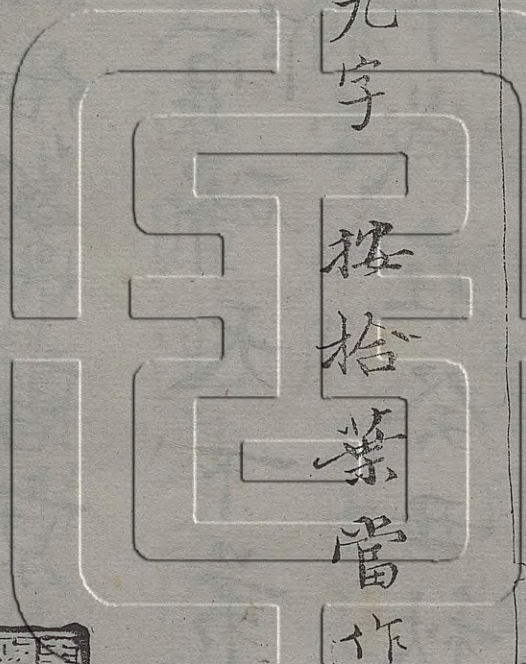 九字 按拾葉當作